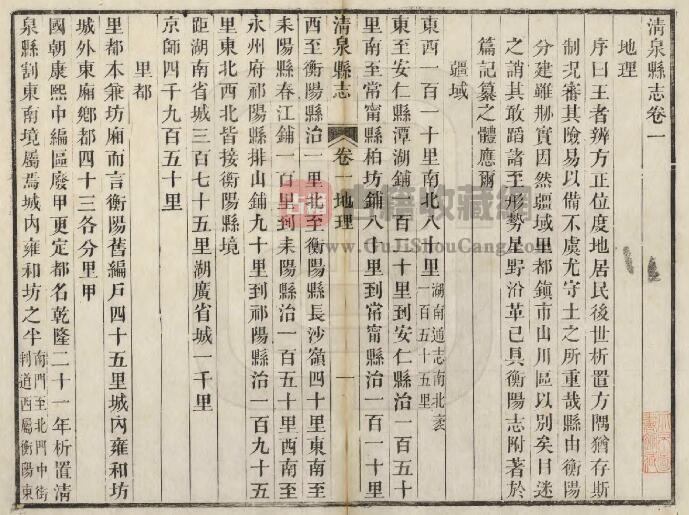 清泉縣志卷一
地理
序曰王者辨方正位度地居民後世析置方隅猶存斯
制況審其險易以備不虞尤守土之所重哉縣由衡陽
分建雖刱實因然疆域里都鎮市山川區以別矣目迷
之誚其敢蹈諸至形勢星野沿革已具衡陽志附著於
篇記纂之體應爾
疆域
東西一百一十里南北八十里湖南通志南北袤一百五十五里
東至安仁縣潭湖鋪一百一十里到安仁縣治一百五十
里南至常甯縣柏坊鋪八十里到常甯縣治一百一十里
清泉縣志 卷一 地理 一
西至衡陽縣治一里北至衡陽縣長沙嶺四十里東南至
耒陽縣春江鋪一百里到耒陽縣治一百五十里西南至
永州府祁陽縣排山鋪九十里到祁陽縣治一百九十五
里東北西北皆接衡陽縣境
距湖南省城三百七十五里湖廣省城一千里
京師四千九百五十里
里都
里都本兼坊廂而言衡陽舊編戸四十五里城內雍和坊
城外東廂鄉都四十三各分里甲
國朝康熙中編區廢甲更定都名乾隆二十一年析置清
泉縣割東南境屬焉城內雍和坊之半南門至北門中街判道西屬衡陽東
书籍收藏网
www.GuJiShouCang.com